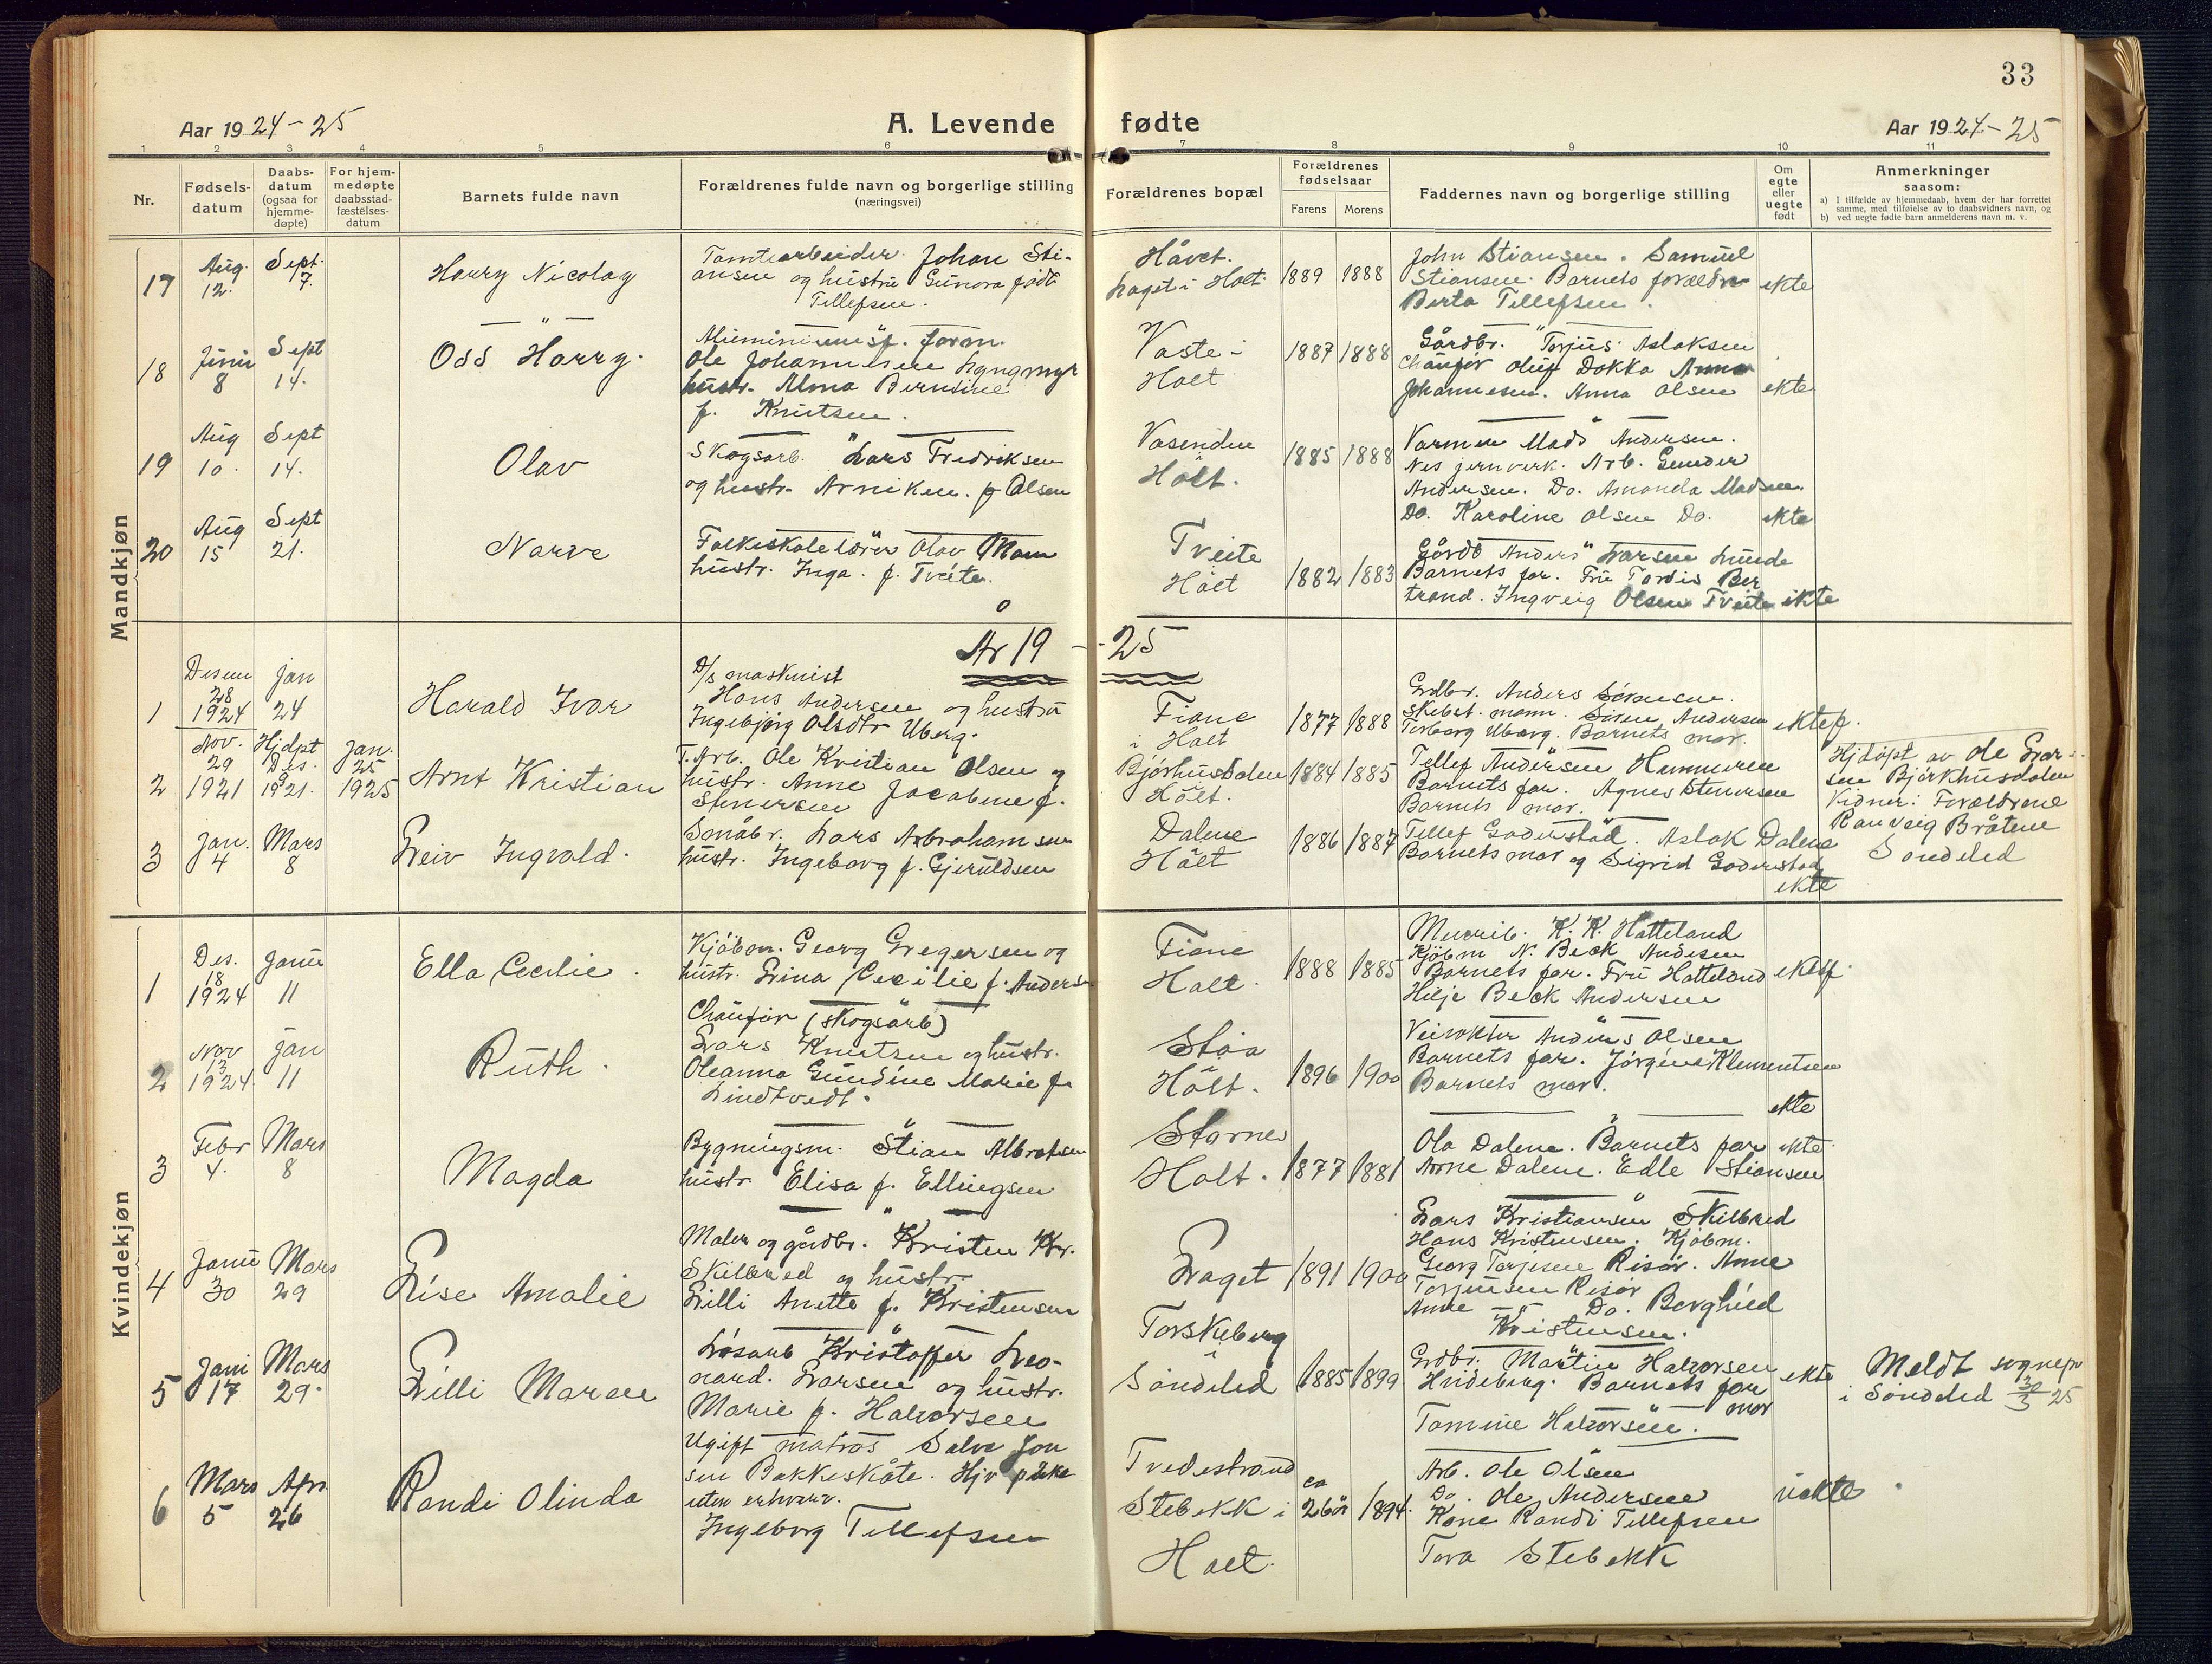 33
Aar 1924-25
A. Levende fødte
Aar 1924-25
1 2 3 4 5 6 7 8 9 10 11
Nr.
Fødsels-
datum
Daabs-
datum
(ogsaa for
hjemme-
døpte)
For hjem-
medøpte
daabsstad-
fæstelses-
datum
Barnets fulde navn
Forældrenes fulde navn og borgerlige stilling
(næringsvei)
Forældrenes bopæl
Forældrenes
fødselsaar
Farens
Morens
Faddernes navn og borgerlige stilling
Om
egte
eller
uegte
født
Anmerkninger
saasom:
a) I tilfælde av hjemmedaab, hvem der har forrettet
samme, med tilføielse av to daabsvidners navn, og
b) ved uegte fødte barn anmelderens navn m. v.
Mandkjøn
17
Aug.
12.
Sept.
7.
Harry Nicolay
Tomtearbeider Johan Sti-
ansen og hustru Gunora født
Tellefsen.
Håvet.
haget i Holt.
1889
1888
John Stiansen. Samuel
Stiansen. Barnets forældre
Berta Tellefsen.
ekte
18
Juni
8
Sept
14.
Odd Harry.
Aluminiumsf. form.
Ole Johannesen Lyngmyr
hustr. Alma Bernsine
f. Knutsen.
Vaste i
Holt
1887
1888
Gårdbr. Torjus Aslaksen
Chaufør Oluf Dokka Anna
Johannesen. Anna Olsen
ekte
19
Aug
10.
Sept
14.
Olav
Skogsarb. Lars Fredriksen
og hustr. Arniken. f. Olsen
Vasenden
Holt.
1885
1888
Varmen Mads Andersen.
Nes jernverk. Arb. Gunder
Andersen. Do. Amanda Madsen.
Do. Karoline Olsen Do.
ekte
20
Aug
15
Sept
21.
Narve
Folkeskolelærer Olav Mom
hustr. Inga. f. Tveite.
Tveite
Holt
1882
1883
Gårdb Anders Larsen Lunde
Barnets far. Fru Tordis Ber
trand. Ingveig Olsen Tveite
ekte
År 19 - - 25
1
Desem
28
1924
Jan
24
Harald Ivar
D/s maskinist
Hans Andersen og hustru
Ingebjørg Olsdtr Uberg.
Fiane
i Holt
1877
1888
Grdbr. Anders Sørensen.
Skibst. mann. Søren Andersen
Torborg Uberg. Barnets mor.
ektef.
2
Nov.
29
1921
Hjdpt
Des.
9
1921.
Jan.
25
1925
Arnt Kristian
T. Arb. Ole Kristian Olsen og
hustr. Anne Jacobine f.
Stenersen
Bjørhusdalen
Holt.
1884
1885
Tellef Andersen Hammeren
Barnets far. Agnes Stenersen
Barnets mor.
Hjdøpt av Ole Lar-
sen Bjørkhusdalen
Vidner: Forældrene
Ranveig Bråtene
Søndeled
3
Jan.
4
Mars
8
Leiv Ingvald.
Småbr. Lars Abrahamsen
hustr. Ingeborg f. Gjeruldsen
Dalene
Holt
1886
1887
Tellef Goderstad. Aslak Dalene
Barnets mor og Sigrid Goderstad
ekte
Kvindekjøn
1
Des.
18
1924
Janu
11
Ella Cecilie.
Kjøbm. Georg Gregersen og
hustr. Lina Cecilie f. Anders
Fiane
Holt.
1888
1885
K. K. Hatteland
Kjøbm N. Beck Andesen
Barnets far. Fru Hatteland
Hilje Beck Andersen
ektef.
2
Nov
13
1924
Jan
11
Ruth.
Chaufør (skogsarb)
Lars Knutsen og hustr.
Oleanna Gundine Marie f.
Lindtvedt.
Støa
Holt.
1896
1900
Veivokter Anders Olsen
Barnets far. Jørgine Klementsen
Barnets mor.
ekte
3
Febr
4.
Mars
8
Magda
Bygningsm. Stian Albretsen
hustr Elisa f. Ellingsen
Stornes
Holt.
1877
1881
Ola Dalene. Barnets far
Anne Dalene. Edle Stiansen
ekte
4
Janu
30
Mars
29
Lise Amalie
Maler og gårdbr. Kristen Kr.
Skilbred og hustr.
Lilli Anette f. Kristensen
Laget
1891
1900
Lars Kristiansen Skilbred
Hans Kristensen. Kjøbm.
Georg Torjusen Risør. Anne
Torjusen Risør
Anne Do. Borghild
Kristensen.
5
Jani
17
Mars
29.
Lilli Maran
Løsarb Kristoffer Leo-
nard. Larsen og hustr.
Marie f. Halvorsen
Torskeberg
Søndeled
1885
1899
Grdbr. Martin Halvorsen
Hvideberg. Barnets far
mor
Tomine Halvorsen.
ekte
Meldt sognepr
i Søndeled 30/3 25
6
Mars
5
Apr.
26
Randi Olinda
Ugift matros Salve Jon
sen Bakkeskåte. Hjv pike
uten erhverv.
Ingeborg Tellefsen
Tvedestrand
Stebekk i
Holt.
ca
26 år
1894.
Arb. Ole Olsen
Do. Ole Andersen
Kone Randi Tellefsen
Tora Stebekk
uekte